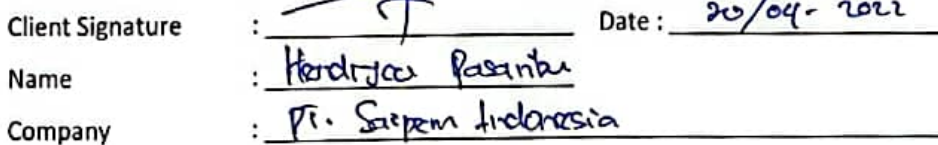 Client Signature : Date : 20/04- 2022
Name : Pasaribu
Company : PT. Saipem Indonesia